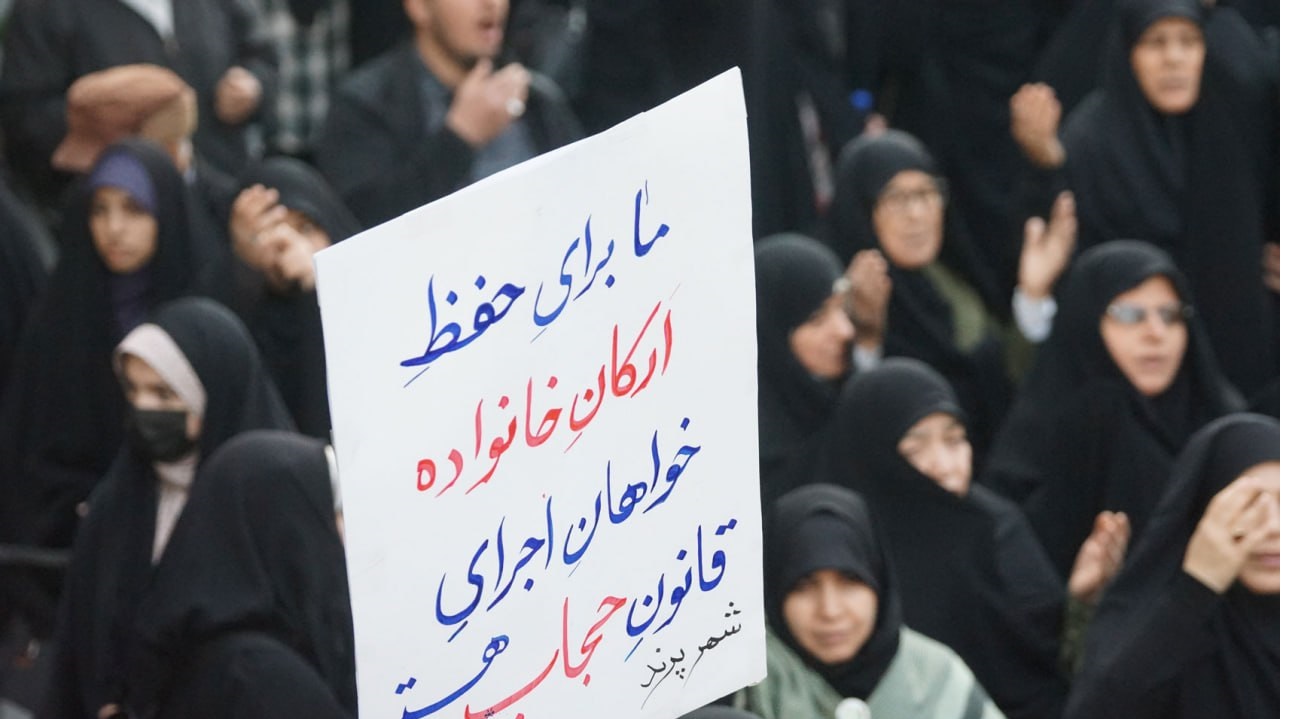 ما برایِ حفظِ
ارکانِ خانواده
خواهانِ اجرایِ
قانونِ حجاب
شهر پرند